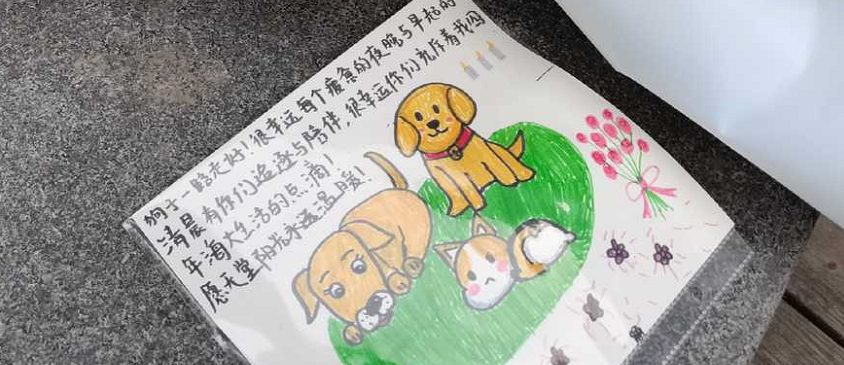 狗子一路走好！很幸运每个疲惫的夜晚与早起的
清晨有你们追逐与陪伴，很幸运你们充斥着我四
年海大生活的点滴！
愿天堂阳光永远温暖！